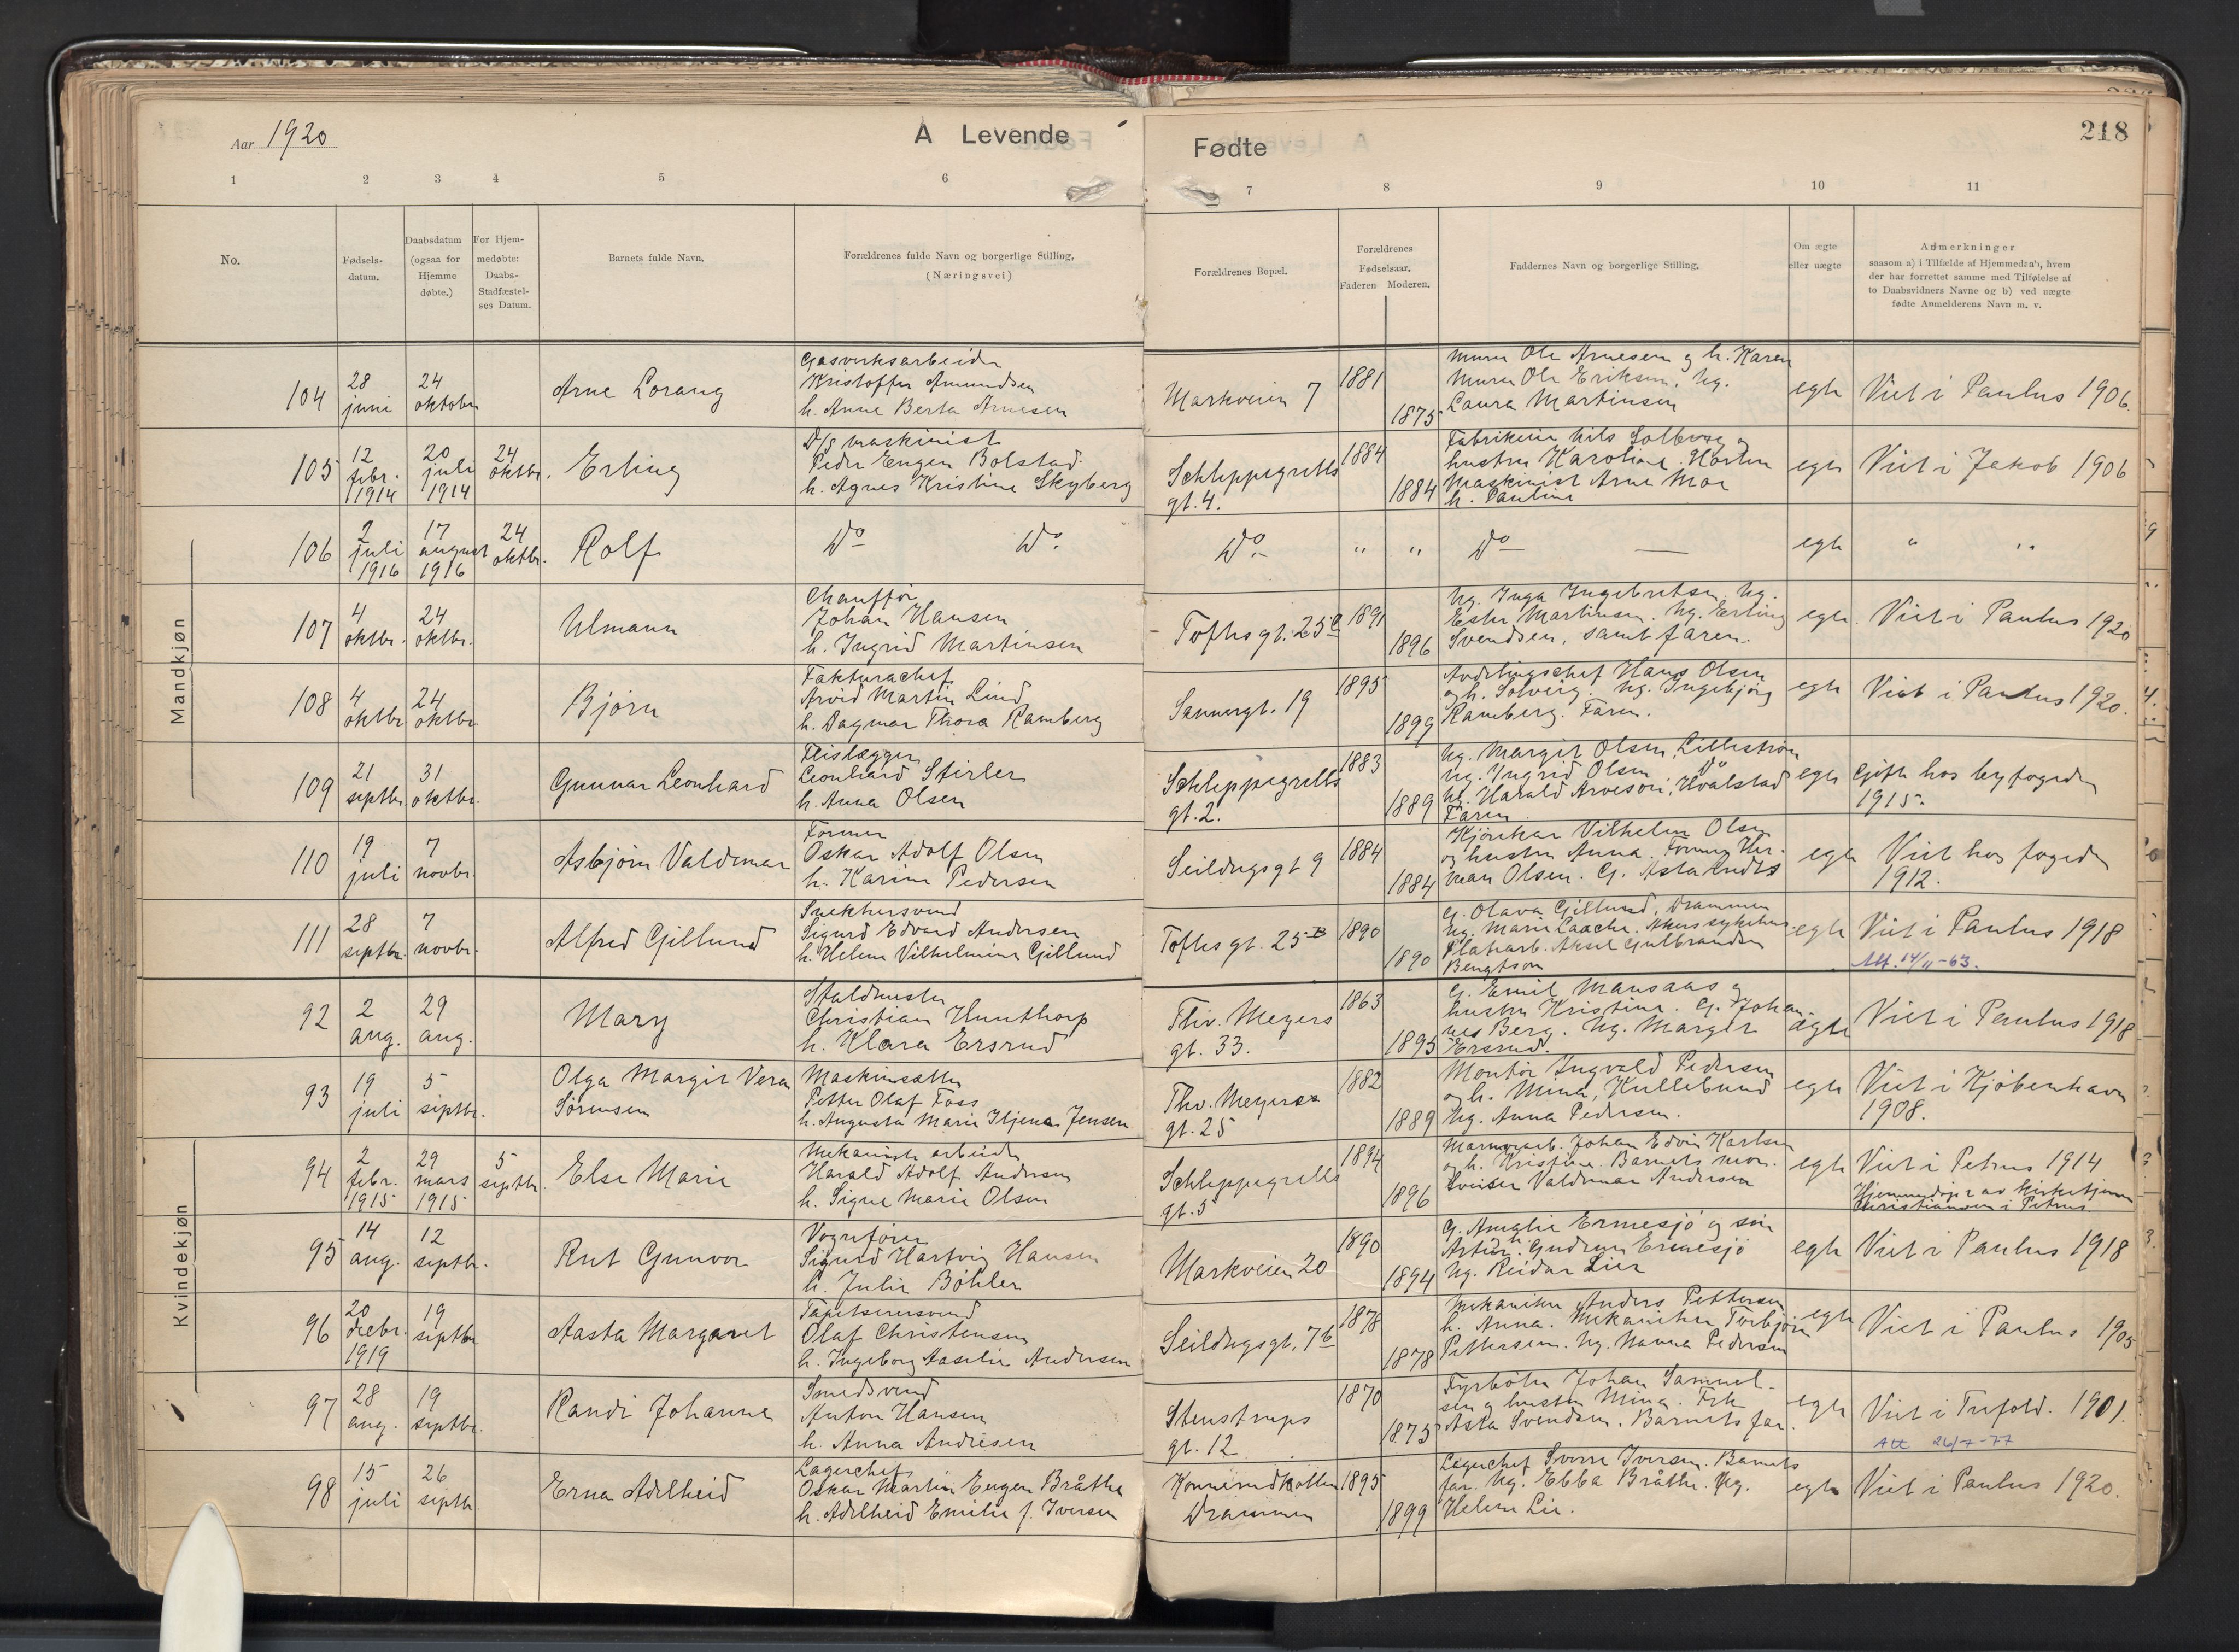 Aar 1920
A Levende
Fødte
218
1 2 3 4 5 6 7 8 9 10 11
No.
Fødsels-
datum.
Daabsdatum
(ogsaa for
Hjemme
døbte.)
For Hjem-
medøbte:
Daabs-
Stadfæstel-
ses Datum.
Barnets fulde Navn.
Forældrenes fulde Navn og borgerlige Stilling,
(Næringsvei)
Forældrenes Bopæl.
Forældrenes
Fødselsaar.
Faderen Moderen.
Faddernes Navn og borgerlige Stilling.
Om ægte
eller uægte
Anmerkninger
saasom a) i Tilfælde af Hjemmedaab, hvem
der har forrettet samme med Tilføielse af
to Daabsvidners Navne og b) ved uægte
fødte Anmelderens Navn m. v.
Mandkjøn
104
28
juni
24
oktober
Arne Lorang
Gasverksarbeider
Kristoffer Amundsen
h. Anne Berta Arnesen
Markveien 7
1881
1875
Murer Ole Arnesen og h. Karen
Murer Ole Eriksen, Ug.
Laura Martinsen
egte
Viet i Paulus 1906.
105
12
febr.
1914
20
juli
1914
24
oktbr.
Erling
D/S maskinist
Peder Eugen Bolstad
h. Agnes Kristine Skyberg
Schleppegrells
gt. 4.
1884
1884
Fabrikeier Nils Solberg og
hustru Karoline, Horten
Maskinist Arne Moe
h. Pauline
egte
Viet i Jakob 1906
106
2
juli
1916
17
august
1916
24
oktbr.
Rolf
Do Do.
Do
" "
Do
egte
" "
107
4
oktbr.
24
oktbr.
Ulmann
Chauffør
Johan Hansen
h. Ingrid Martinsen
Toftes gt. 25
1891
1896
Ug. Inga Ingebretsen. Ug.
Ester Martinsen. Ug. Erling
Svendsen, samt faren.
egte
Viet i Paulus 1920
108
4
oktbr
24
oktbr
Bjørn
Fakturachef
Arvid Martin Lind
h. Dagmar Thora Ramberg
Sannergt. 19
1895
1899
Avdelingschef Hans Olsen
og h. Solveig. Ug. Ingebjørg
Ramberg. Faren.
egte
Viet i Paulus 1920.
109
21
septbr
31
oktbr.
Gunnar Leonhard
Fliselægger
Leonhard Stirler
h. Anna Olsen
Schleppegrells
gt. 2.
1883
1889
Ug. Margit Olsen, Lillestrøm
Ug. Ingrid Olsen Do
Ug. Harald Arveson, Hvalstad
Faren
egte
Gift hos byfogden
1915.
110
19
juli
7
novbr.
Asbjørn Valdemar
Former
Oskar Adolf Olsen
h. Karine Pedersen
Seildugsgt 9
1884
1884
Kjørekar Vilhelm Olsen
og hustru Anna. Former Her-
man Olsen. G. Asta
egte
Viet hos fogden
1912.
111
28
septbr.
7
novbr.
Alfred Gjellund
Snekkersvend
Sigurd Edvard Andersen
h. Helene Vilhelmine Gjellund
Toftes gt. 25 B
1890
1890
G. Olava Gjellund, Drammen
Ug. Marie Laache, Akers sykehus
Platearb. Aksel Gulbrandsen
Bengtson
egte
Viet i Paulus 1918
Att. 14/11-63.
Kvindekjøn
92
2
aug.
29
aug.
Mary
Staldmester
Christian Hunthorp
h. Klara Ersrud
Thv. Meyers
gt. 33.
1863
1895
G. Emil Mansaas og
hustru Kristine. G. Johan-
nes Berg. Ug. Margit
Ersrud.
ægte
Viet i Paulus 1918
93
19
juli
5
septbr.
Olga Margit Vera
Sørensen
Maskinsætter
Petter Olaf Foss
h. Augusta Marie Jensen
Thv. Meyers
gt. 25
1882
1889
Montør Ingvald Pedersen
og h. Mina, Kullebund
Ug. Anna Pedersen.
egte
Viet i Kjøbenhavn
1908.
94
2
febr.
1915
29
mars
1915
5
septbr.
Else Marie
Mekanisk arbeider
Harald Adolf Andersen
h. Signe Marie Olsen
Schleppegrells
gt. 5
1894
1896
Marmorarb. Johan Edvin Karlsen
og h. Kristine. Barnets mor.
Sveiser Valdemar Andersen
egte
Viet i Petrus 1914
Hjemmedøpt av kirketjener
Christiansen i Petrus.
95
14
aug.
12
septbr.
Rut Gunvor
Vognfører
Sigurd Hartvig Hansen
h. Julie Bøhler
Markveien 20
1890
1894
G. Amalie Ermesjø og søn
Artur. h. Gudrun Ermesjø
Ug. Reidar Lier
egte
Viet i Paulus 1918
96
20
decbr.
1919
19
septbr
Aasta Margaret
Tapetserersvend
Olaf Christensen
h. Ingeborg Aaselie Andersen
Seildugsgt. 7b
1878
1878
Mekaniker Anders Pettersen
h. Anna. Mekaniker Torbjørn
Pettersen. Ug. Nanna Pedersen
egte
Viet i Paulus 1905
97
28
aug.
19
septbr.
Randi Johanne
Smedsvend
Anton Hansen
h. Anna Andresen
Stenstrups
gt. 12
1870
1875
Fyrbøter Johan Samuel-
sen og hustru Mina. Frk
Asta Svendsen. Barnets far.
egte
Viet i Trefold. 1901.
Att 26/7-77
98
15
juli
26
septbr.
Erna Adelheid
Lagerchef
Oskar Martin Eugen Bråthe
h. Adelheid Emilie f. Iversen
Konnerudkollen
Drammen
1895
1899
Lagerchef Sverre Iversen. Barnets
far. Ug. Ebba Bråthe. Ug.
Helene Lie.
egte
Viet i Paulus 1920.